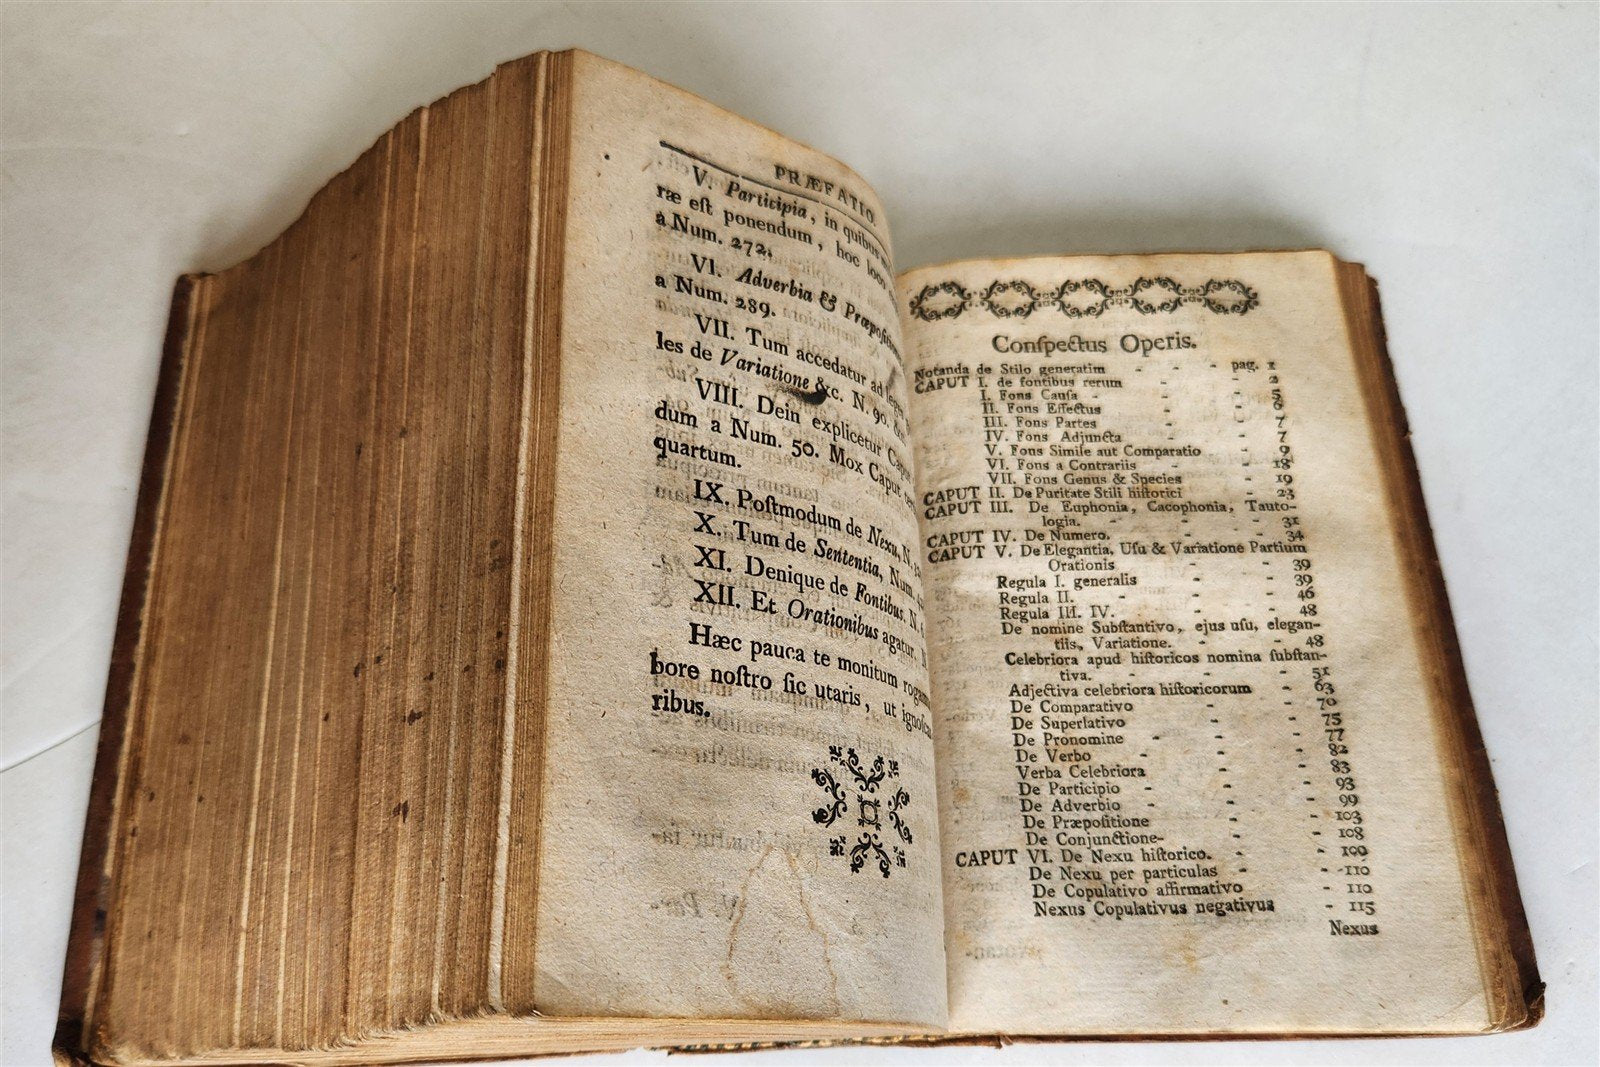 PRÆFATIO
V. Participia, in quibus
ræ eſt ponendum, hoc loco
a Num. 272.
VI. Adverbia & Præpoſitiones
a Num. 289.
VII. Tum accedatur ad
les de Variatione &c. N. 90.
VIII. Dein explicetur Caput
dum a Num. 50. Mox Caput
quartum.
IX. Poſtmodum de Nexu, N.
X. Tum de Sententia, Num.
XI. Denique de Fontibus. N.
XII. Et Orationibus agatur.
Hæc pauca te monitum
bore noſtro ſic utaris, ut
ribus.
Conſpectus Operis.
Notanda de Stilo generatim - - - pag. 1
CAPUT I. de fontibus rerum - - 2
I. Fons Cauſa - - - 5
II. Fons Effectus - - 6
III. Fons Partes - - 7
IV. Fons Adjuncta - - 7
V. Fons Simile aut Comparatio - 9
VI. Fons a Contrariis - - 18
VII. Fons Genus & Species - 19
CAPUT II. De Puritate Stili hiſtorici - 23
CAPUT III. De Euphonia, Cacophonia, Tauto-
logia. - - - 31
CAPUT IV. De Numero. - - 34
CAPUT V. De Elegantia, Uſu & Variatione Partium
Orationis - - 39
Regula I. generalis - - 39
Regula II. - - - 46
Regula III. IV. - - - 48
De nomine Subſtantivo, ejus uſu, elegan-
tiis, Variatione. - - 48
Celebriora apud hiſtoricos nomina ſubſtan-
tiva. - - - 51
Adjectiva celebriora hiſtoricorum - 63
De Comparativo - - 70
De Superlativo - - 75
De Pronomine - - - 77
De Verbo - - - 82
Verba Celebriora - - 83
De Participio - - - 93
De Adverbio - - - 99
De Præpoſitione - - 103
De Conjunctione - - 108
CAPUT VI. De Nexu hiſtorico. - - 109
De Nexu per particulas - - 110
De Copulativo affirmativo - 110
Nexus Copulativus negativus - 115
Nexus